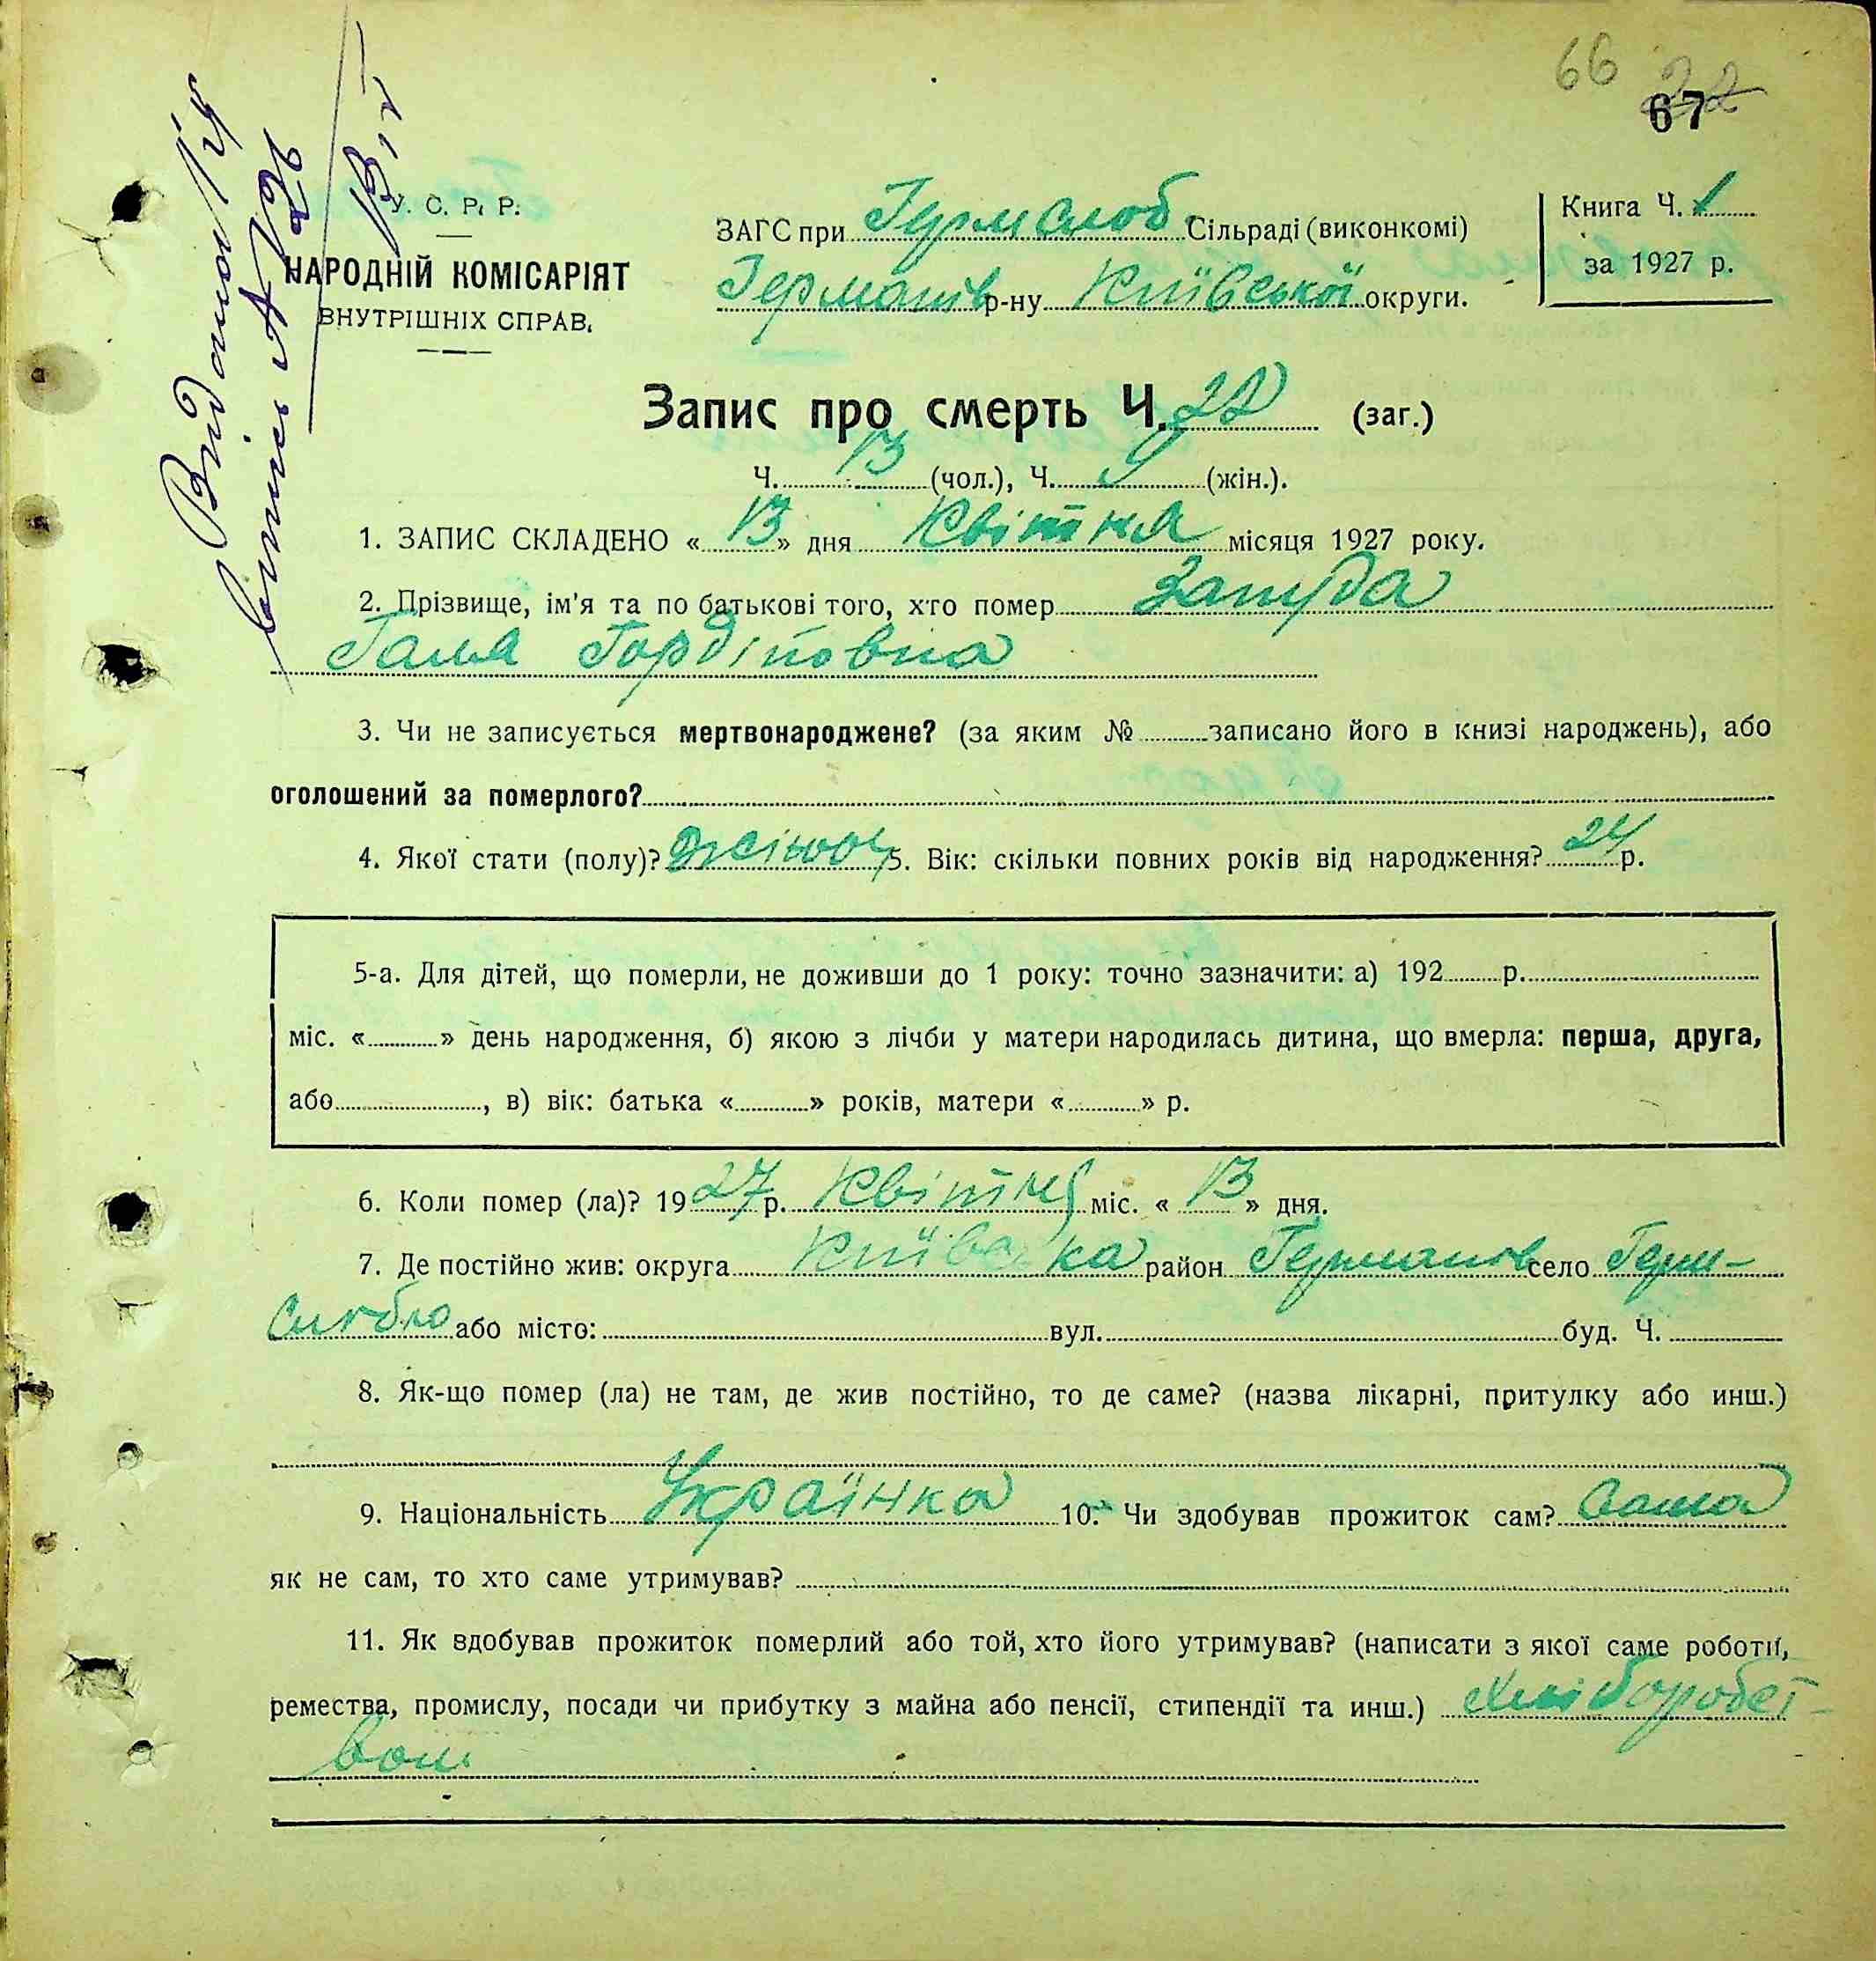 66 22
67
У. С. Р. Р.
НАРОДНІЙ КОМІСАРІЯТ
ВНУТРІШНІХ СПРАВ.
ЗАГС при Герм Слоб. Сільраді (виконкомі)
Германів р-ну Київської округи.
Книга Ч. 1
за 1927 р.
Запис про смерть Ч. 22 (заг.)
Ч. 13 (чол.), Ч. 9 (жін.).
1. ЗАПИС СКЛАДЕНО « 13 » дня Квітня місяця 1927 року.
2. Прізвище, ім'я та по батькові того, хто помер
Галя Гордіповна
3. Чи не записується мертвонароджене? (за яким № записано його в книзі народжень), або
оголошений за померлого?
4. Якої стати (полу)? Жіноч 5. Вік: скільки повних років від народження? 24 р.
5-а. Для дітей, що померли, не доживши до 1 року: точно зазначити: а) 192 р.
міс. « » день народження, б) якою з лічби у матери народилась дитина, що вмерла: перша, друга,
або , в) вік: батька « » років, матери « » р.
6. Коли помер (ла)? 1927 р. Квітня міс. « 13 » дня.
7. Де постійно жив: округа Київська район Германов село Герм-
Слобю або місто: вул. буд. Ч.
8. Як-що помер (ла) не там, де жив постійно, то де саме? (назва лікарні, притулку або инш.)
9. Національність Українка 10. Чи здобував прожиток сам? Сама
як не сам, то хто саме утримував?
11. Як здобував прожиток померлий або той, хто його утримував? (написати з якої саме роботи,
ремества, промислу, посади чи прибутку з майна або пенсії, стипендії та инш.) Хліборобст-
вом